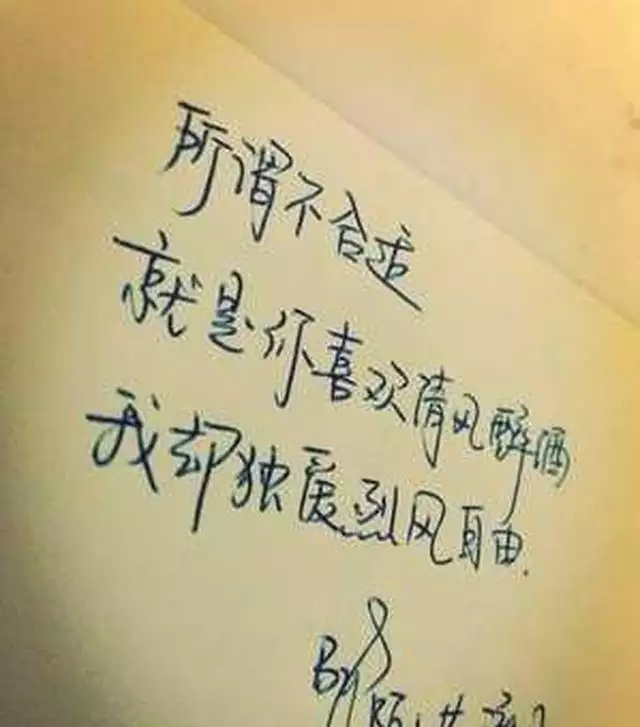 所谓不合适
就是你喜欢清风醉酒
我却独爱烈风自由.
By